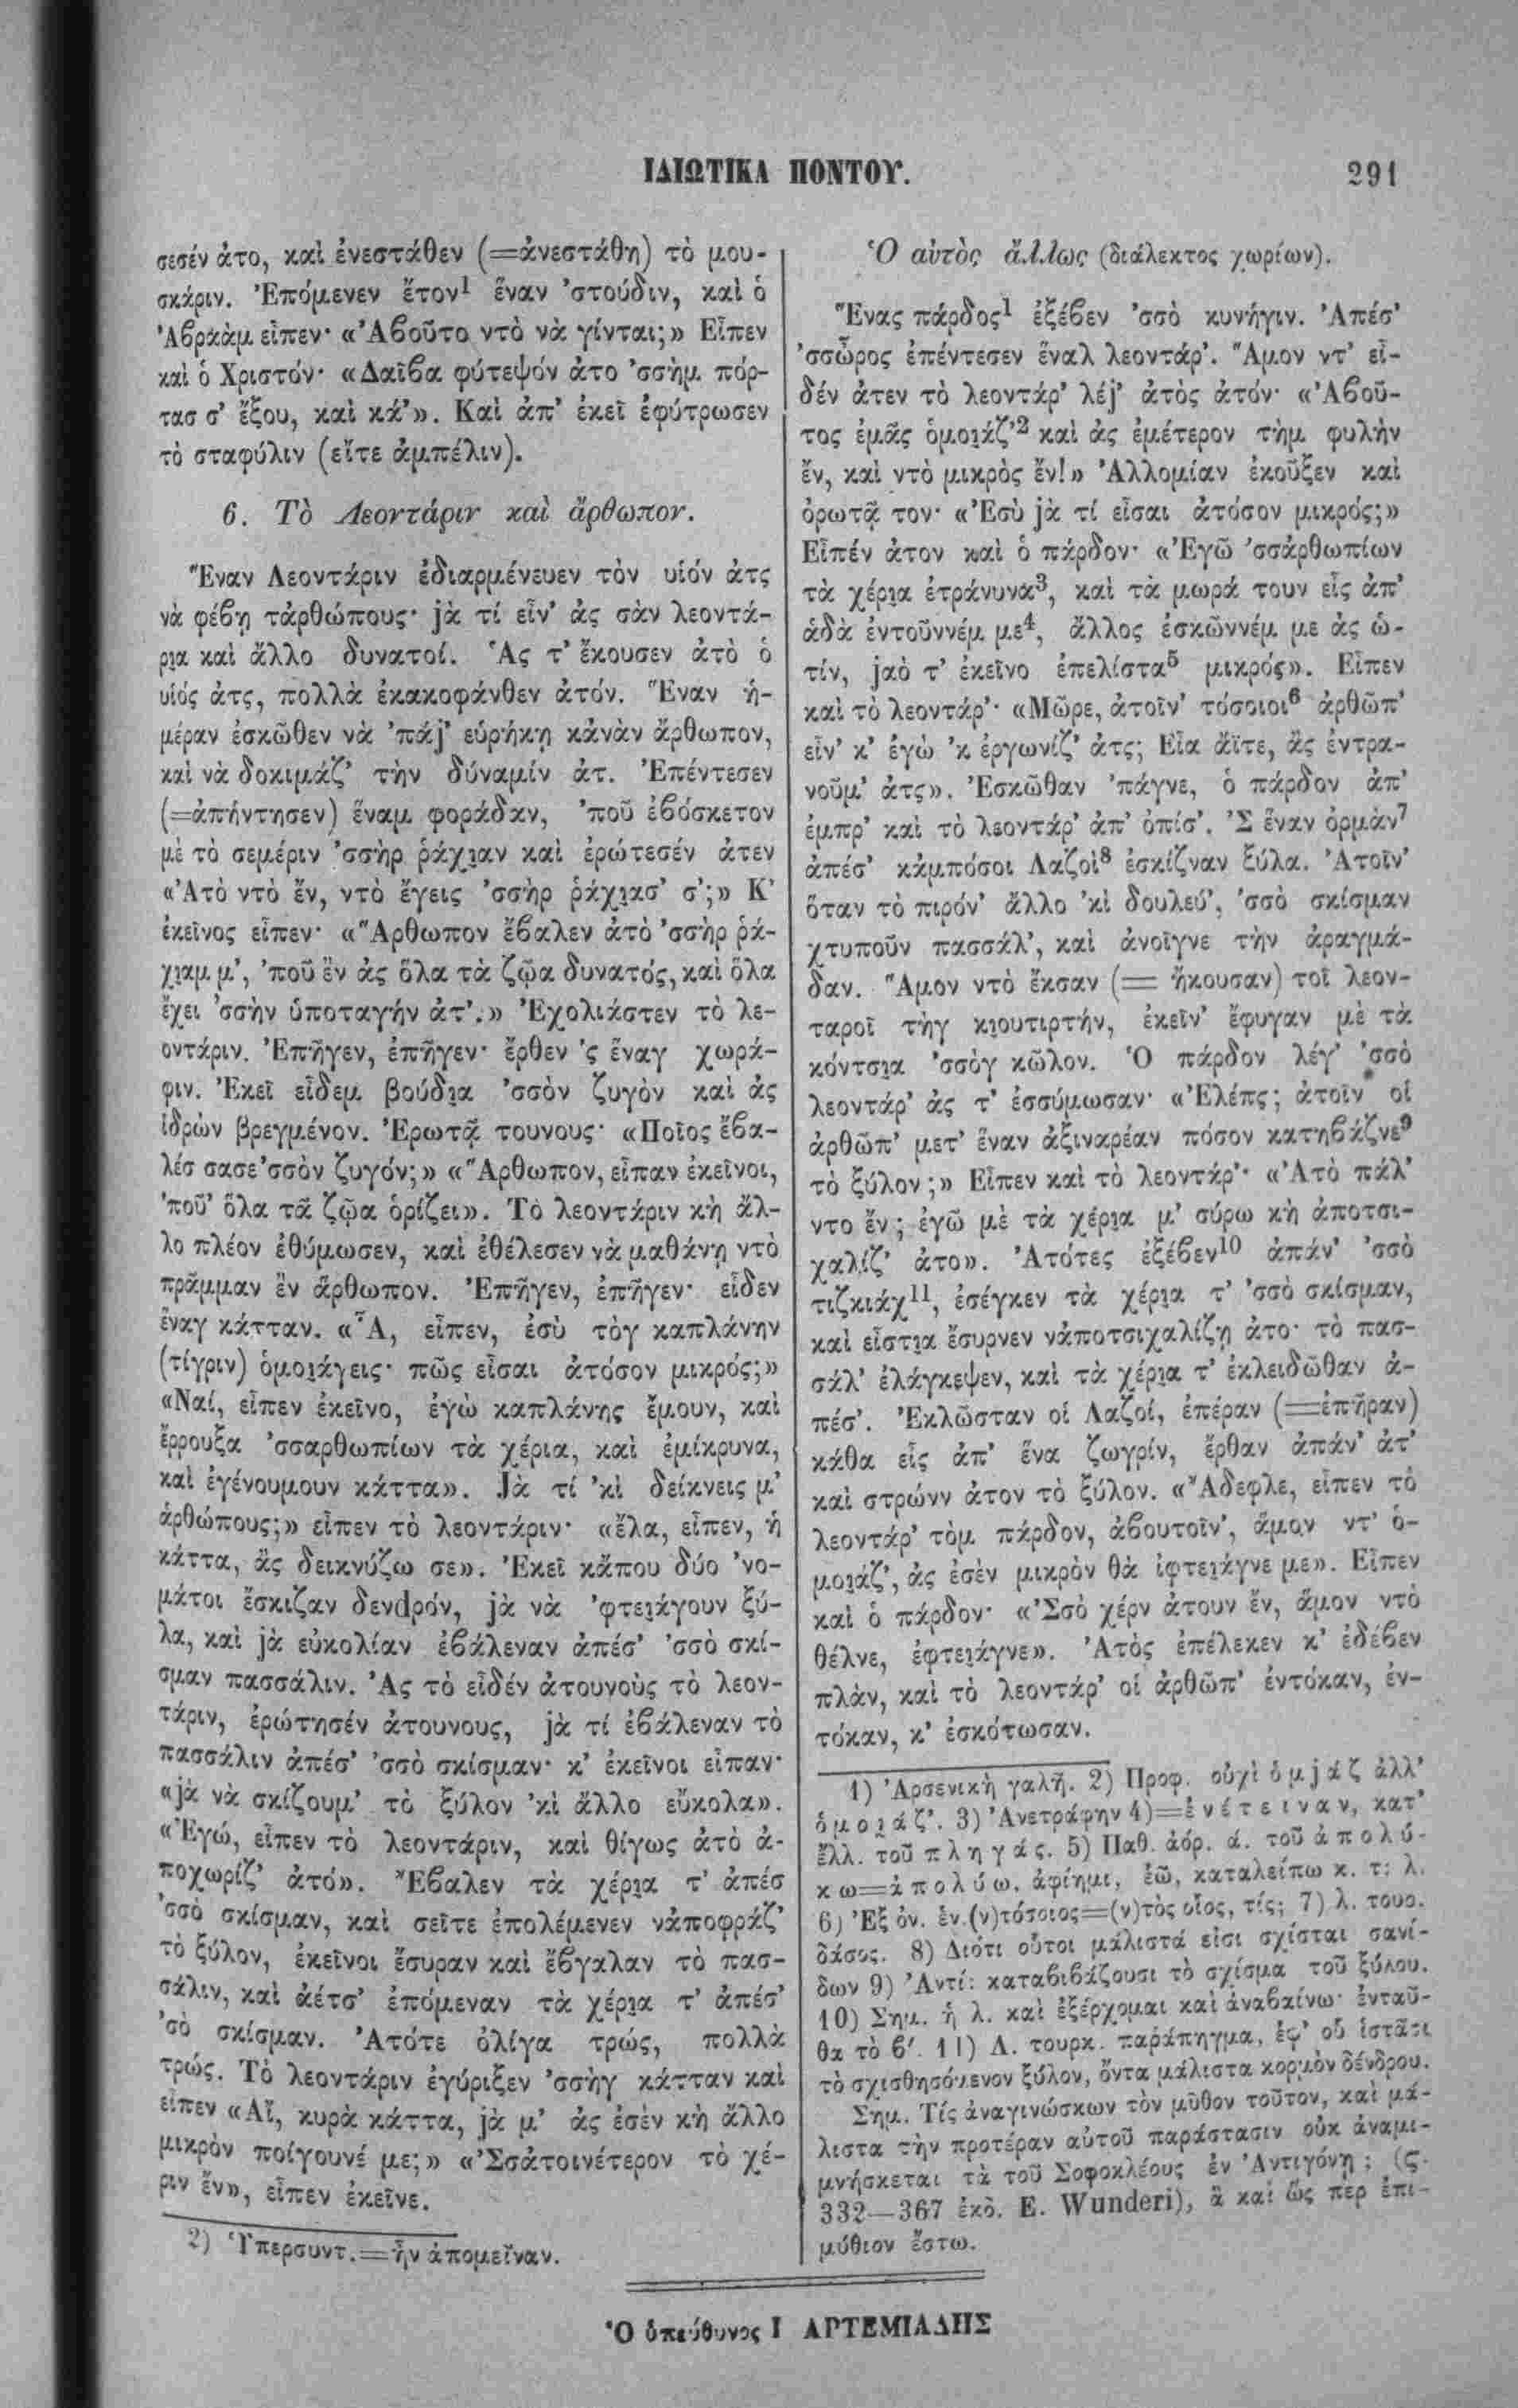 ΙΔΙΩΤΙΚΑ ΠΟΝΤΟΥ.
291
σεσέν ἀτο, καὶ ἐνεστάθεν (=ἀνεστάθη) τὸ μου-
σκάριν. Ἐπόμενεν ἔτον¹ ἕναν 'στούδιν, καὶ ὁ
Ἀβραὰμ εἶπεν· «Ἀβοῦτο ντὸ νὰ γίνται;» Εἶπεν
καὶ ὁ Χριστόν· «Δαῖβα φύτεψόν ἀτο 'σσὴμ πόρ-
τασ σ' ἔξου, καὶ κά'». Καὶ ἀπ' ἐκεῖ ἐφύτρωσεν
τὸ σταφύλιν (εἴτε ἀμπέλιν).
6. Τὸ Λεοντάριν καὶ ἄρθωπον.
Ἕναν Λεοντάριν ἐδιαρμένευεν τὸν υἱόν ἀτς
νὰ φέβῃ τἀρθώπους· jὰ τί εἶν' ἀς σὰν λεοντά-
ρι̯α καὶ ἄλλο δυνατοί. Ἀς τ' ἔκουσεν ἀτὸ ὁ
υἱός ἀτς, πολλὰ ἐκακοφάνθεν ἀτόν. Ἕναν ἡ-
μέραν ἐσκῶθεν νὰ 'πάj' εὑρήκῃ κἀνὰν ἄρθωπον,
καὶ νὰ δοκιμάζ' τὴν δύναμίν ἀτ. Ἐπέντεσεν
(=ἀπήντησεν) ἕναμ φοράδαν, 'ποῦ ἐβόσκετον
μὲ τὸ σεμέριν 'σσὴρ ῥάχι̯αν καὶ ἐρώτεσέν ἀτεν
«Ἀτὸ ντὸ ἔν, ντὸ ἔγεις 'σσὴρ ῥάχι̯ασ' σ';» Κ'
ἐκεῖνος εἶπεν· «Ἄρθωπον ἔβαλεν ἀτὸ 'σσὴρ ῥά-
χι̯αμ μ', 'ποῦ ἒν ἀς ὅλα τὰ ζῷα δυνατός, καὶ ὅλα
ἔχει 'σσὴν ὑποταγήν ἀτ'.» Ἐχολιάστεν τὸ λε-
οντάριν. Ἐπῆγεν, ἐπῆγεν· ἔρθεν 'ς ἕναγ χωρά-
φιν. Ἐκεῖ εἶδεμ βούδι̯α 'σσὸν ζυγὸν καὶ ἀς
ἱδρὼν βρεγμένον. Ἐρωτᾷ τουνους· «Ποῖος ἔβα-
λέσ σασε'σσὸν ζυγόν;» «Ἄρθωπον, εἶπαν ἐκεῖνοι,
'ποῦ' ὅλα τὰ ζῷα ὁρίζει». Τὸ λεοντάριν κὴ ἄλ-
λο πλέον ἐθύμωσεν, καὶ ἐθέλεσεν νὰ μαθάνῃ ντὸ
πρᾶμμαν ἒν ἄρθωπον. Ἐπῆγεν, ἐπῆγεν· εἶδεν
ἕναγ κάτταν. «Ἆ, εἶπεν, ἐσὺ τὸγ καπλάνην
(τίγριν) ὁμοι̯άγεις· πῶς εἶσαι ἀτόσον μικρός;»
«Ναί, εἶπεν ἐκεῖνο, ἐγὼ καπλάνης ἔμουν, καὶ
ἔρρουξα 'σσαρθωπίων τὰ χέρια, καὶ ἐμίκρυνα,
καὶ ἐγένουμουν κάττα». Jὰ τί 'κὶ δείκνεις μ'
ἀρθώπους;» εἶπεν τὸ λεοντάριν· «ἔλα, εἶπεν, ἡ
κάττα, ἂς δεικνύζω σε». Ἐκεῖ κἄπου δύο 'νο-
μάτοι ἔσκιζαν δενdρόν, jὰ νὰ 'φτει̯άγουν ξύ-
λα, καὶ jὰ εὐκολίαν ἐβάλεναν ἀπέσ' 'σσὸ σκί-
σμαν πασσάλιν. Ἀς τὸ εἶδέν ἀτουνοὺς τὸ λεον-
τάριν, ἐρώτησέν ἀτουνους, jὰ τί ἐβάλεναν τὸ
πασσάλιν ἀπέσ' 'σσὸ σκίσμαν· κ' ἐκεῖνοι εἶπαν·
«jὰ νὰ σκίζουμ' τὸ ξύλον 'κὶ ἄλλο εὔκολα».
«Ἐγώ, εἶπεν τὸ λεοντάριν, καὶ θίγως ἀτὸ ἀ-
ποχωρίζ' ἀτό». Ἔβαλεν τὰ χέρι̯α τ' ἀπέσ
'σσὸ σκίσμαν, καὶ σεῖτε ἐπολέμενεν νἀποφράζ'
τὸ ξύλον, ἐκεῖνοι ἔσυραν καὶ ἔβγαλαν τὸ πασ-
σάλιν, καὶ ἀέτσ' ἐπόμεναν τὰ χέρι̯α τ' ἀπέσ'
'σὸ σκίσμαν. Ἀτότε ὀλίγα τρώς, πολλὰ
τρώς. Τὸ λεοντάριν ἐγύριξεν 'σσὴγ κάτταν καὶ
εἶπεν «Αἴ, κυρὰ κάττα, jὰ μ' ἀς ἐσὲν κὴ ἄλλο
μικρὸν ποίγουνέ με;» «Ἐσἀτοινέτερον τὸ χέ-
ριν ἔν», εἶπεν ἐκεῖνε.
2) Ὑπερσυντ.=ἦν ἀπομεῖναν.
Ὁ αὐτὸς ἄλλως (διάλεκτος χωρίων).
Ἕνας πάρδος¹ ἐξέβεν 'σσὸ κυνήγιν. Ἀπέσ'
'σσὦρος ἐπέντεσεν ἕναλ λεοντάρ'. Ἄμον ντ' εἶ-
δέν ἀτεν τὸ λεοντάρ' λέj' ἀτὸς ἀτόν· «Ἀβοῦ-
τος ἐμᾶς ὁμοι̯άζ'² καὶ ἀς ἐμέτερον τὴμ φυλὴν
ἔν, καὶ ντὸ μικρὸς ἔν!» Ἀλλομίαν ἐκοῦξεν καὶ
ὀρωτᾷ τον· «Ἐσὺ jὰ τί εἶσαι ἀτόσον μικρός;»
Εἶπέν ἀτον καὶ ὁ πάρδον· «Ἐγῶ 'σσἀρθωπίων
τὰ χέρι̯α ἐτράνυνα³, καὶ τὰ μωρά τουν εἷς ἀπ'
ἀδὰ ἐντοῦννέμ με⁴, ἄλλος ἐσκῶννέμ με ἀς ὠ-
τίν, jαὸ τ' ἐκεῖνο ἐπελίστα⁵ μικρός». Εἶπεν
καὶ τὸ λεοντάρ'· «Μῶρε, ἀτοῖν' τόσοιοι⁶ ἀρθῶπ'
εἶν' κ' ἐγὼ 'κ ἐργωνίζ' ἀτς; Εἶα ἄϊτε, ἂς ἐντρα-
νοῦμ' ἀτς». Ἐσκῶθαν 'πάγνε, ὁ πάρδον ἀπ'
ἐμπρ' καὶ τὸ λεοντάρ' ἀπ' ὀπίσ'. Σ ἕναν ὁρμὰν⁷
ἀπέσ' κἀμπόσοι Λαζοὶ⁸ ἐσκίζναν ξύλα. Ἀτοῖν'
ὅταν τὸ πιρόν' ἄλλο 'κὶ δουλεύ', 'σσὸ σκίσμαν
χτυποῦν πασσάλ', καὶ ἀνοῖγνε τὴν ἀραγμά-
δαν. Ἄμον ντὸ ἔκσαν (= ἤκουσαν) τοῖ λεον-
ταροῖ τὴγ κι̯ουτιρτήν, ἐκεῖν' ἔφυγαν μὲ τὰ
κόντσι̯α 'σσὸγ κῶλον. Ὁ πάρδον λέγ' 'σσὸ
λεοντάρ' ἀς τ' ἐσσύμωσαν· «Ἐλέπς; ἀτοῖν' οἱ
ἀρθῶπ' μετ' ἕναν ἀξιναρέαν πόσον κατηβάζνε⁹
τὸ ξύλον;» Εἶπεν καὶ τὸ λεοντάρ'· «Ἀτὸ πάλ'
ντο ἔν; ἐγῶ μὲ τὰ χέρι̯α μ' σύρω κὴ ἀποτσι-
χαλίζ' ἀτο». Ἀτότες ἐξέβεν¹⁰ ἀπάν' 'σσὸ
τιζκιάχ¹¹, ἐσέγκεν τὰ χέρι̯α τ' 'σσὸ σκίσμαν,
καὶ εἶστι̯α ἔσυρνεν νἀποτσιχαλίζῃ ἀτο· τὸ πασ-
σάλ' ἐλάγκεψεν, καὶ τὰ χέρι̯α τ' ἐκλειδῶθαν ἀ-
πέσ'. Ἐκλῶσταν οἱ Λαζοί, ἐπέραν (=ἐπῆραν)
κάθα εἷς ἀπ' ἕνα ζωγρίν, ἔρθαν ἀπάν' ἀτ'
καὶ στρώνν ἀτον τὸ ξύλον. «Ἄδεφλε, εἶπεν τὸ
λεοντάρ' τὸμ πάρδον, ἀβουτοῖν', ἄμον ντ' ὁ-
μοι̯άζ', ἀς ἐσὲν μικρὸν θὰ ἱφτει̯άγνε με». Εἶπεν
καὶ ὁ πάρδον· «Σσὸ χέρν ἀτουν ἔν, ἄμον ντὸ
θέλνε, ἐφτει̯άγνε». Ἀτὸς ἐπέλεκεν κ' ἐδέβεν
πλὰν, καὶ τὸ λεοντάρ' οἱ ἀρθῶπ' ἐντόκαν, ἐν-
τόκαν, κ' ἐσκότωσαν.
1) Ἀρσενικὴ γαλῆ. 2) Προφ. οὐχὶ ὁμjάζ ἀλλ'
ὁμοι̯άζ'. 3) Ἀνετράφην 4)=ἐνέτειναν, κατ'
ἔλλ. τοῦ πληγάς. 5) Παθ. ἀόρ. ά. τοῦ ἀπολύ-
κω=ἀπολύω, ἀφίημι, ἐῶ, καταλείπω κ. τ. λ.
6) Ἐξ ὀν. ἑν.(ν)τόσοιος=(ν)τὸς οἷος, τίς; 7) λ. τουρ.
δάσος. 8) Διότι οὗτοι μάλιστά εἰσι σχίσται σανί-
δων 9) Ἀντί: καταβιβάζουσι τὸ σχίσμα τοῦ ξύλου.
10) Σημ. ἡ λ. καὶ ἐξέρχομαι καὶ ἀναβαίνω· ἐνταῦ-
θα τὸ β′. 11) Λ. τουρκ. παράπηγμα, ἐφ' οὗ ἱστᾶσι
τὸ σχισθησόμενον ξύλον, ὄντα μάλιστα κορμὸν δένδρου.
Σημ. Τίς ἀναγινώσκων τὸν μῦθον τοῦτον, καὶ μά-
λιστα τὴν προτέραν αὐτοῦ παράστασιν οὐκ ἀναμι-
μνήσκεται τὰ τοῦ Σοφοκλέους ἐν Ἀντιγόνῃ; (ς.
332—367 ἐκδ. E. Wunderi), ἃ καὶ ὥς περ ἐπι-
μύθιον ἔστω.
Ὁ ὑπεύθυνος Ι ΑΡΤΕΜΙΑΔΗΣ